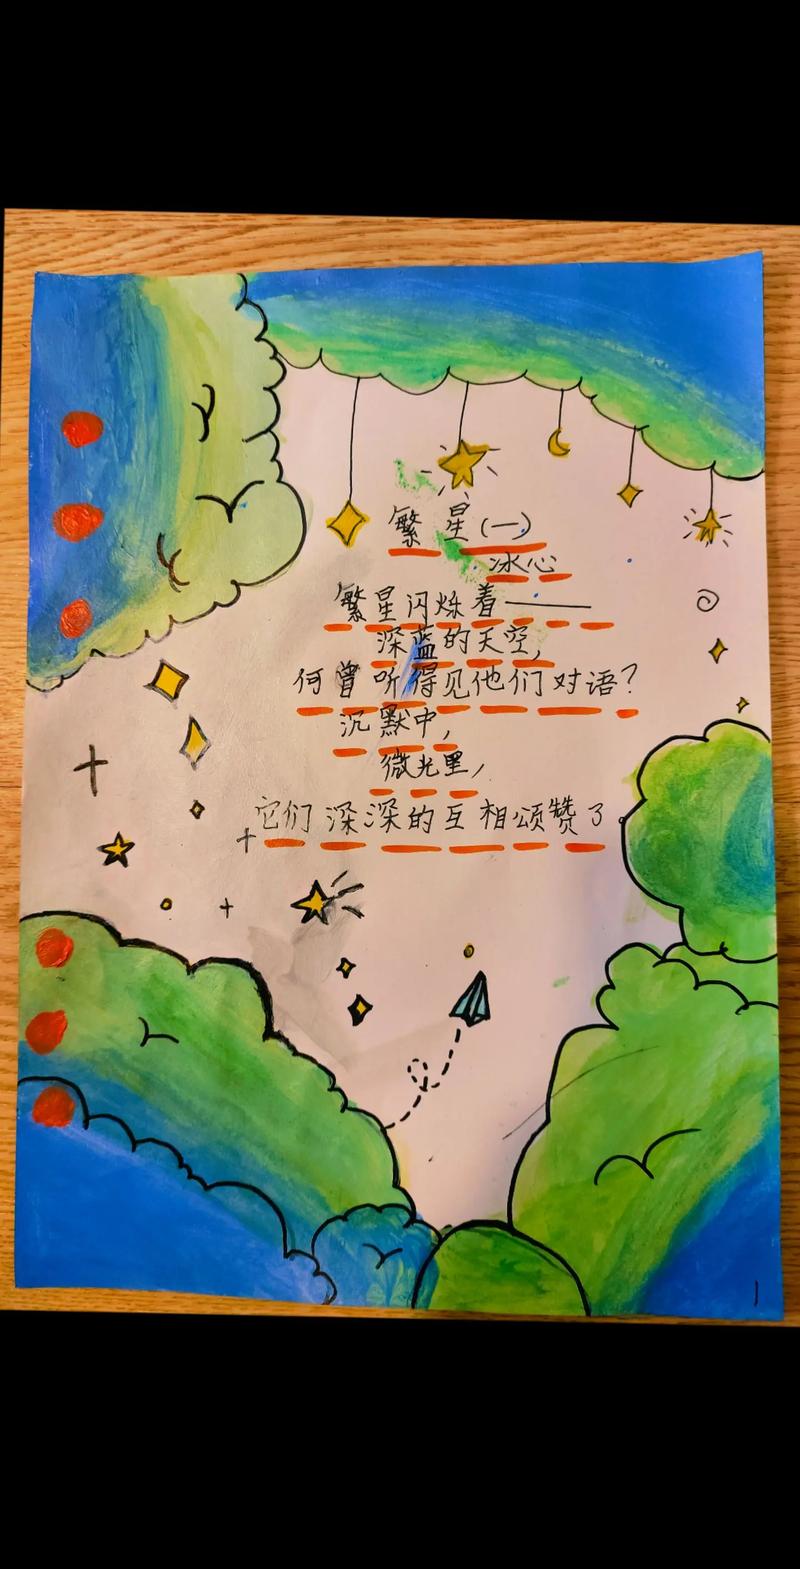 繁星(一)
冰心
繁星闪烁着——
深蓝的天空,
何曾听得见他们对语?
沉默中,
微光里,
它们深深的互相颂赞了
1